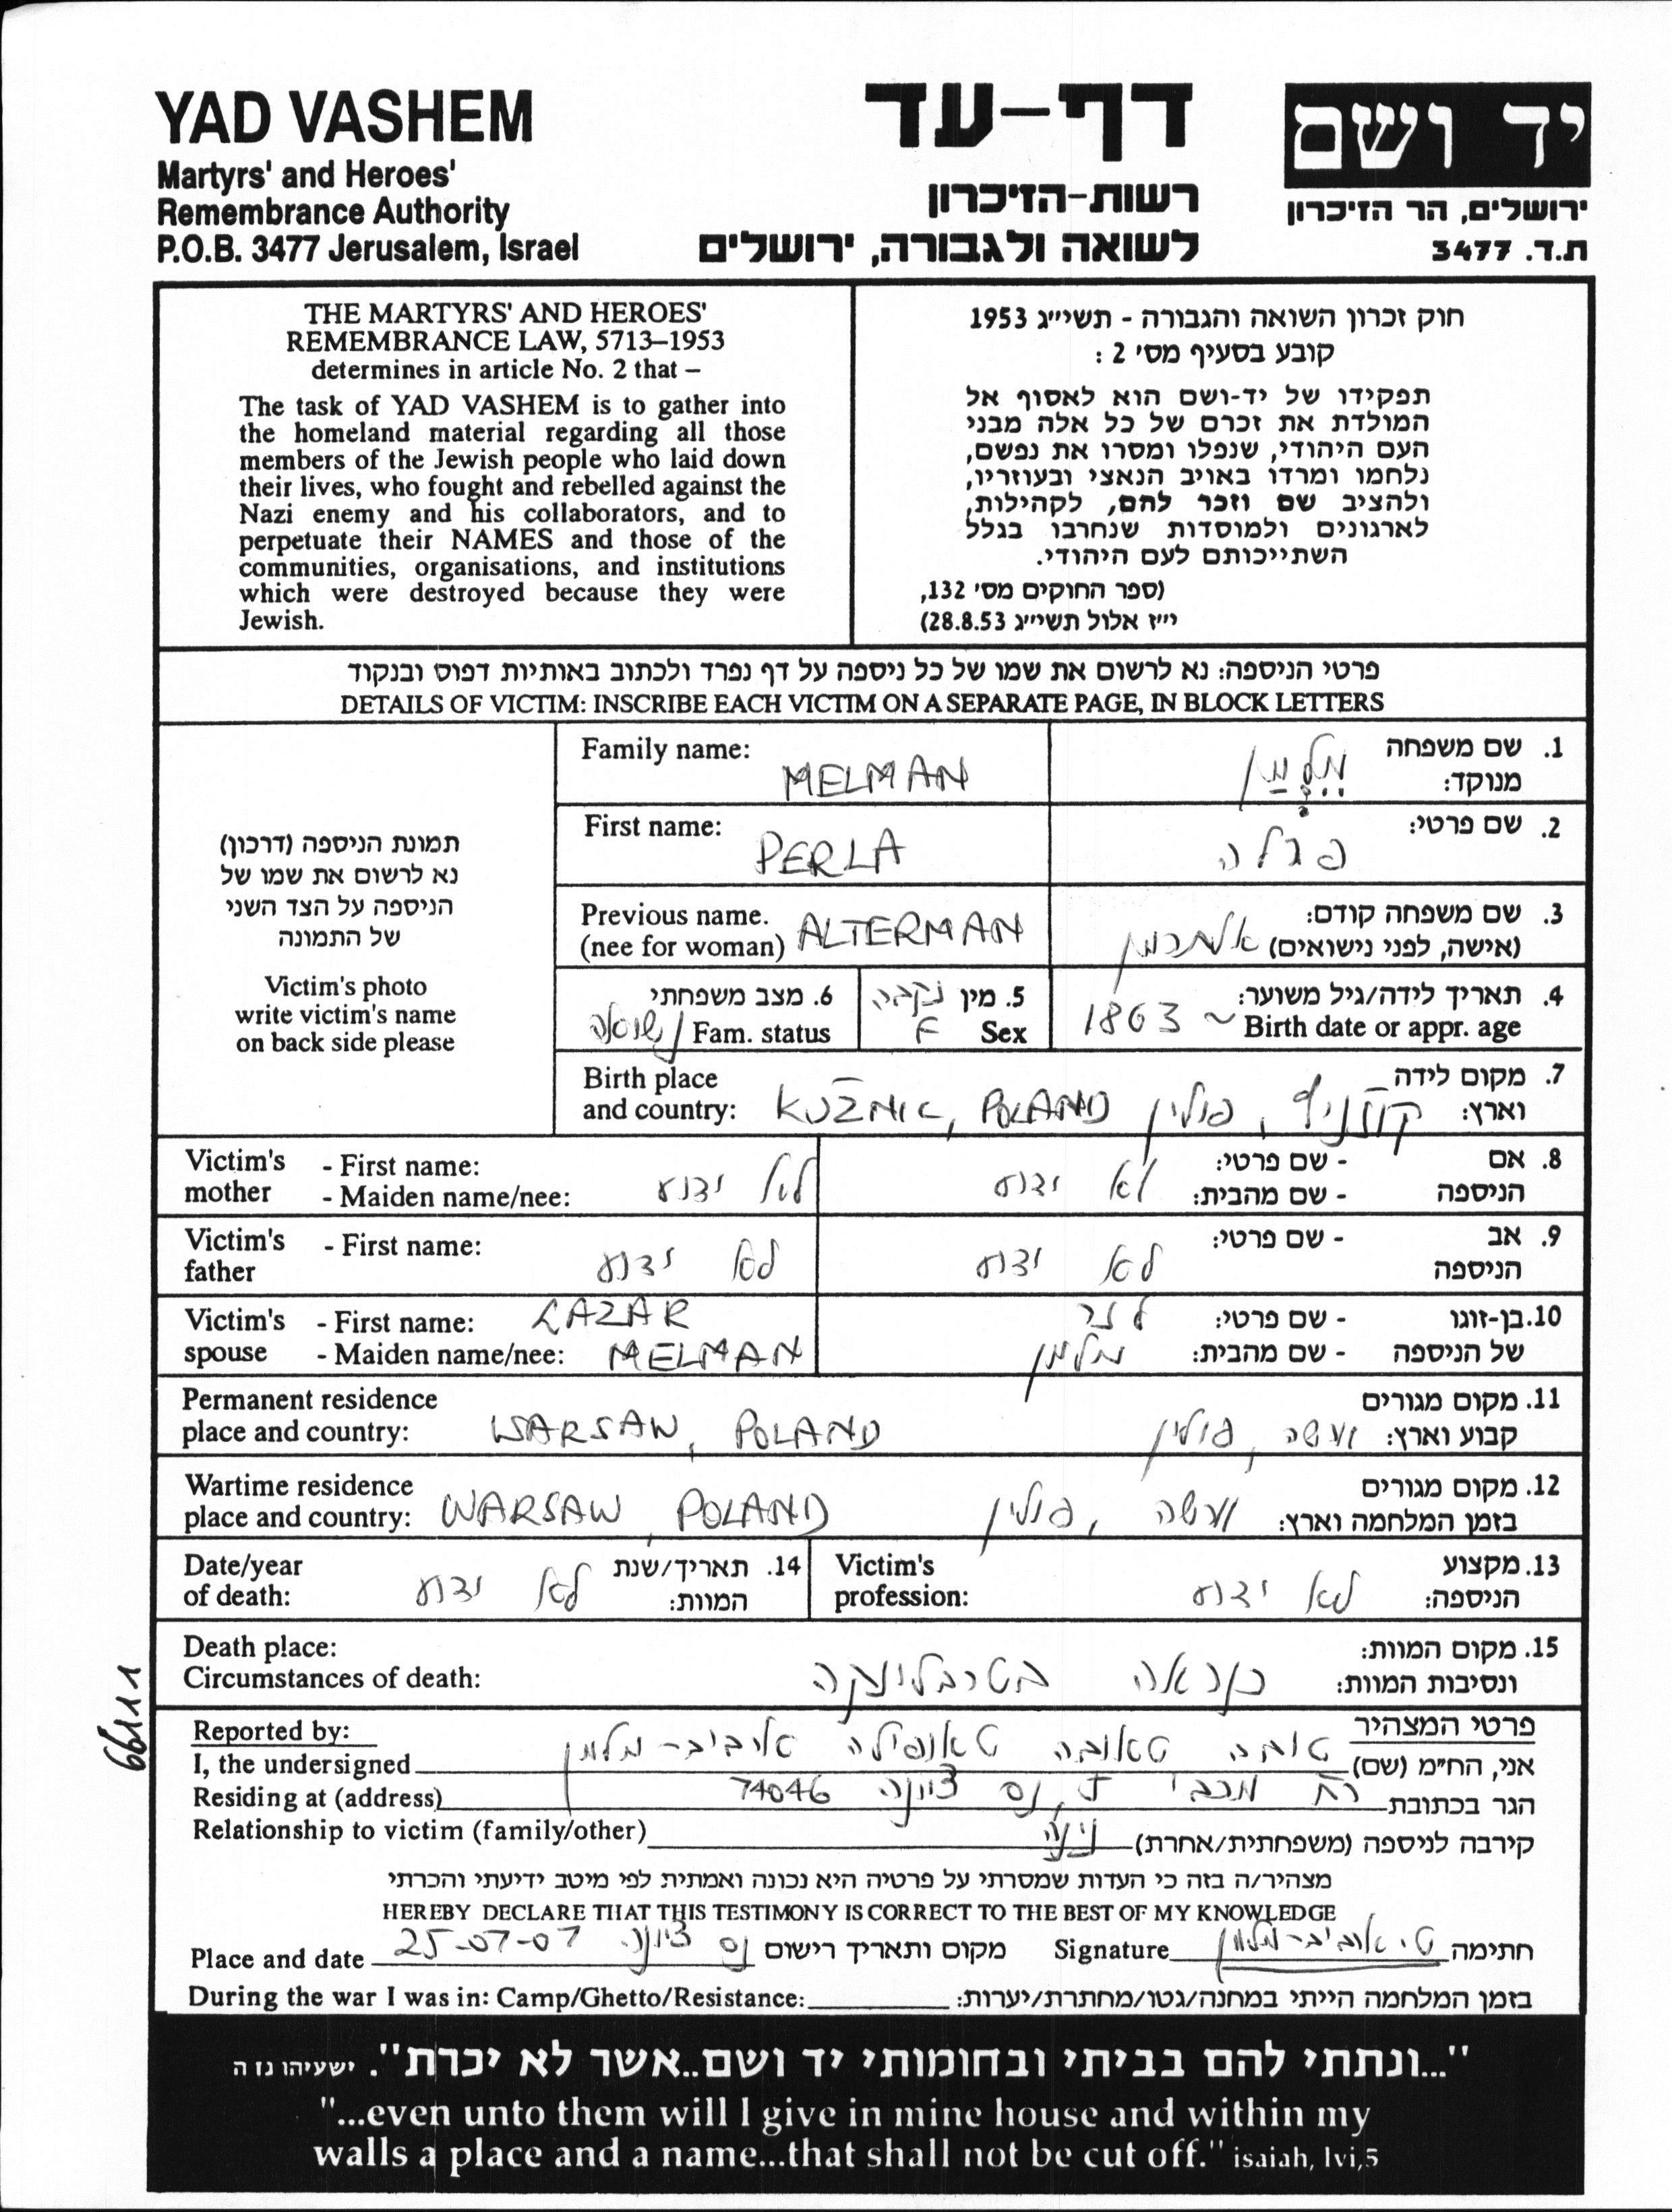 YAD VASHEM
Martyrs' and Heroes'
Remembrance Authority
P.O.B. 3477 Jerusalem, Israel
דף-עד
רשות-הזיכרון
לשואה ולגבורה, ירושלים
יד ושם
ירושלים, הר הזיכרון
ת.ד. 3477
THE MARTYRS' AND HEROES'
REMEMBRANCE LAW, 5713–1953
determines in article No. 2 that –
The task of YAD VASHEM is to gather into
the homeland material regarding all those
members of the Jewish people who laid down
their lives, who fought and rebelled against the
Nazi enemy and his collaborators, and to
perpetuate their NAMES and those of the
communities, organisations, and institutions
which were destroyed because they were
Jewish.
חוק זכרון השואה והגבורה - תשי״ג 1953
קובע בסעיף מס׳ 2 :
תפקידו של יד-ושם הוא לאסוף אל
המולדת את זכרם של כל אלה מבני
העם היהודי, שנפלו ומסרו את נפשם,
נלחמו ומרדו באויב הנאצי ובעוזריו,
ולהציב שם וזכר להם, לקהילות,
לארגונים ולמוסדות שנחרבו בגלל
השתייכותם לעם היהודי.
(ספר החוקים מס׳ 132,
י״ז אלול תשי״ג 28.8.53)
פרטי הניספה: נא לרשום את שמו של כל ניספה על דף נפרד ולכתוב באותיות דפוס ובנקוד
DETAILS OF VICTIM: INSCRIBE EACH VICTIM ON A SEPARATE PAGE, IN BLOCK LETTERS
תמונת הניספה (דרכון)
נא לרשום את שמו של
הניספה על הצד השני
של התמונה
Victim's photo
write victim's name
on back side please
Family name: MELMAN
1. שם משפחה מנוקד: מלמן
First name: PERLA
2. שם פרטי: פרלה
Previous name. (nee for woman) ALTERMAN
3. שם משפחה קודם: (אישה, לפני נישואים) אלתרמן
4. תאריך לידה/גיל משוער: Birth date or appr. age ~ 1863
5. מין נקבה Sex F
6. מצב משפחתי Fam. status נשואה
Birth place and country: KUŹNIC, POLAND
7. מקום לידה וארץ: פולין
Victim's mother - First name: - Maiden name/nee: לא ידוע
8. אם הניספה - שם פרטי: - שם מהבית: לא ידוע
Victim's father - First name: לא ידוע
9. אב הניספה - שם פרטי: לא ידוע
Victim's spouse - First name: LAZAR
- Maiden name/nee: MELMAN
10. בן-זוגו של הניספה - שם פרטי: לזר
- שם מהבית: מלמן
Permanent residence place and country: WARSAW, POLAND
11. מקום מגורים קבוע וארץ: ורשה, פולין
Wartime residence place and country: WARSAW, POLAND
12. מקום מגורים בזמן המלחמה וארץ: ורשה, פולין
Date/year of death: לא ידוע 14. תאריך/שנת המוות:
Victim's profession: לא ידוע 13. מקצוע הניספה:
Death place:
Circumstances of death:
15. מקום המוות: ונסיבות המוות: כנראה בטרבלינקה
66111
Reported by: פרטי המצהיר
I, the undersigned אני, הח״מ (שם) טובה טאובה אביב-מלמן
Residing at (address) הגר בכתובת רח מכבי נס ציונה 74046
Relationship to victim (family/other) קירבה לניספה (משפחתית/אחרת) נינה
מצהיר/ה בזה כי העדות שמסרתי על פרטיה היא נכונה ואמתית לפי מיטב ידיעתי והכרתי
HEREBY DECLARE THAT THIS TESTIMONY IS CORRECT TO THE BEST OF MY KNOWLEDGE
Place and date 25-07-07 נס ציונה מקום ותאריך רישום Signature ט. אביב-מלמן חתימה
During the war I was in: Camp/Ghetto/Resistance: בזמן המלחמה הייתי במחנה/גטו/מחתרת/יערות:
"...ונתתי להם בביתי ובחומותי יד ושם..אשר לא יכרת". ישעיהו נו ה
"...even unto them will I give in mine house and within my
walls a place and a name...that shall not be cut off." isaiah, lvi,5